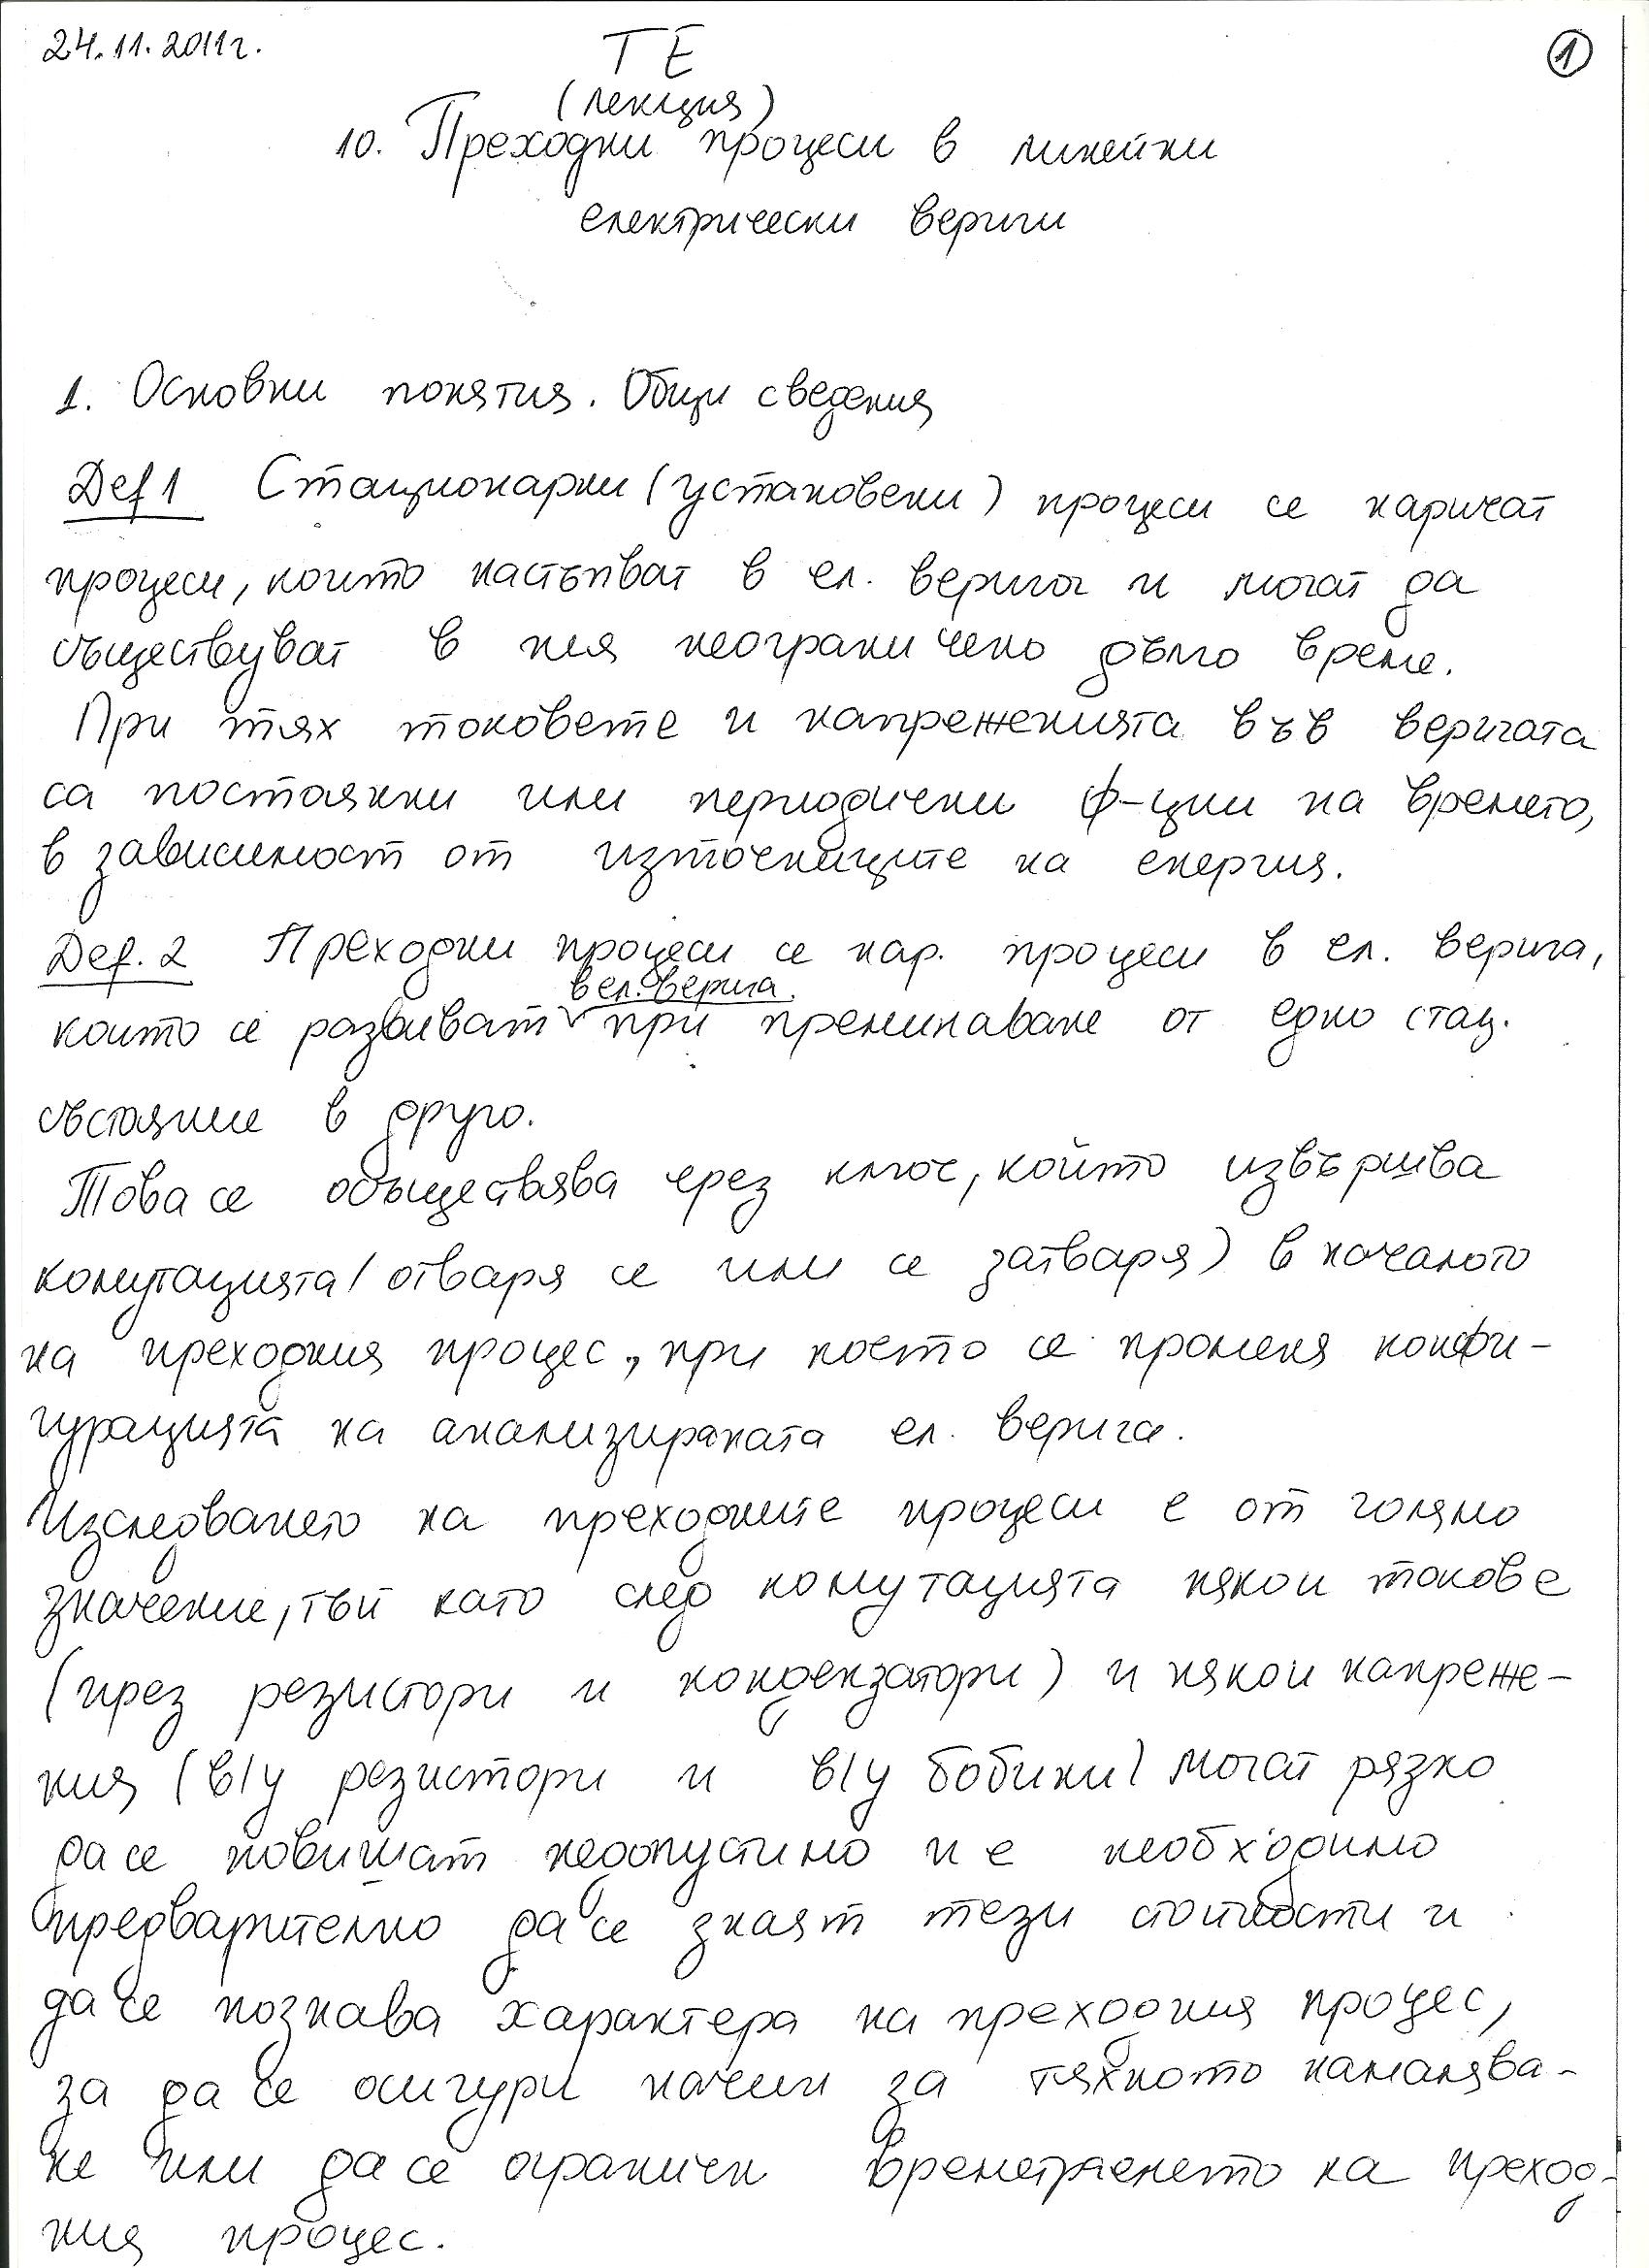 24.11.2011г.
ТЕ
1
(лекция)
10. Преходни процеси в линейни
електрически вериги
1. Основни понятия. Общи сведения
Def 1 Стационарни (установени) процеси се наричат
процеси, които настъпват в ел. верига и могат да
съществуват в нея неограничено дълго време.
При тях токовете и напреженията във веригата
са постоянни или периодични ф-ции на времето,
в зависимост от източниците на енергия.
Def. 2 Преходни процеси се нар. процеси в ел. верига,
в ел. верига.
които се развиват при преминаване от едно стац.
състояние в друго.
Това се осъществява чрез ключ, който извършва
комутацията (отваря се или се затваря) в началото
на преходния процес, при което се променя конфи-
гурацията на анализираната ел. верига.
Изследването на преходните процеси е от голямо
значение, тъй като след комутацията някои токове
(през резистори и кондензатори) и някои напреже-
ния (в/у резистори и в/у бобини) могат рязко
да се повишат недопустимо и е необходимо
предварително да се знаят тези стойности и
да се познава характера на преходния процес,
за да се осигури начин за тяхното намалява-
не или да се ограничи времетраенето на преход-
ния процес.